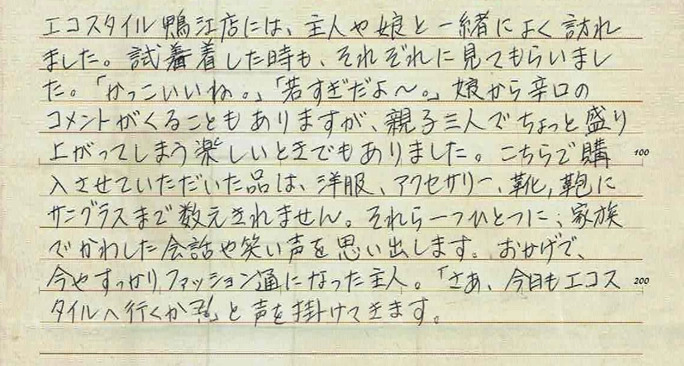 エコスタイル鴨江店には、主人や娘と一緒によく訪れ
ました。試着した時も、それぞれに見てもらいまし
た。「かっこいいね。」「若すぎだよ〜。」娘から辛口の
コメントがくることもありますが、親子三人でちょっと盛り
上がってしまう楽しいときでもありました。こちらで購 100
入させていただいた品は、洋服、アクセサリー、靴、鞄に
サングラスまで数えきれません。それら一つひとつに、家族
でかわした会話や笑い声を思い出します。おかげで、
今やすっかりファッション通になった主人。「さあ、今日もエコス 200
タイルへ行くか」と声を掛けてきます。